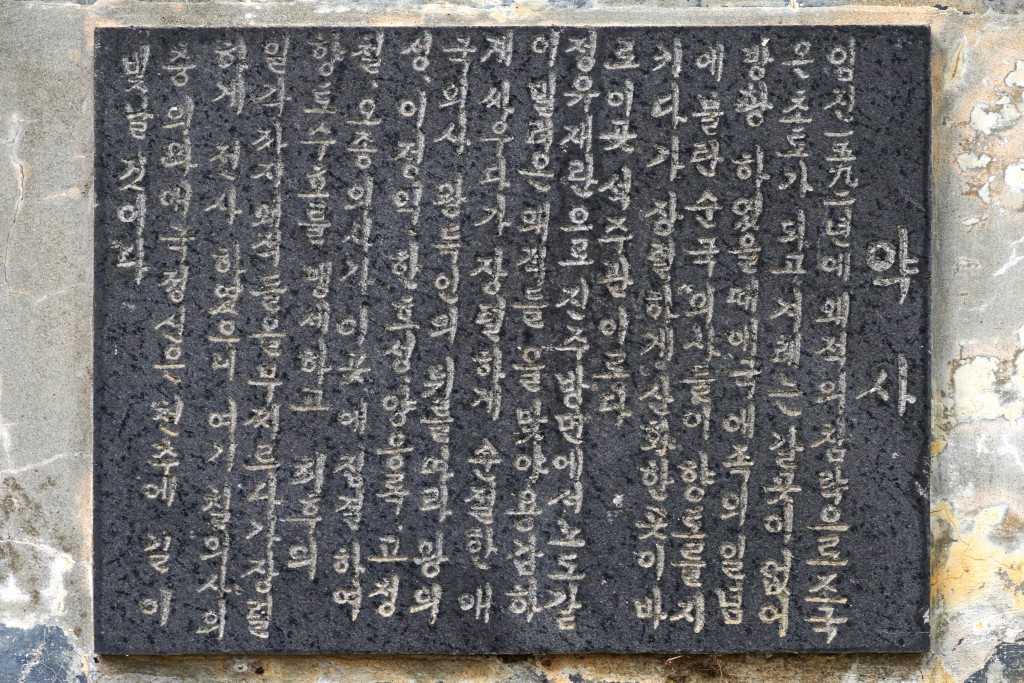 약 사
임진一五九二년에 왜적의 침략으로 조국
은 초토가 되고 겨레는 갈곳이 없이
방황 하였을때 애국애족의 일념
에 불탄 순국 의사들이 향토를 지
키다가 장렬하게 산화한 곳이 바
로 이곳 석주관 이로다
정유재란으로 진주방면에서 노도갈
이 밀려온 왜적들을 맞아 용감하
게 싸우다가 장렬하게 순절한 애
국의사 왕득인의 뒤를 따라 왕의
성, 이정익, 한호성, 양응록, 고정
철, 오종의사가 이곳에 집결 하여
향토수호를 맹세하고 최후의
일각까지 왜적들을 무찌르다가 장렬
하게 전사 하였으니 여기 칠의사의
충의와 애국정신은 천추에 길이
빛날것이다